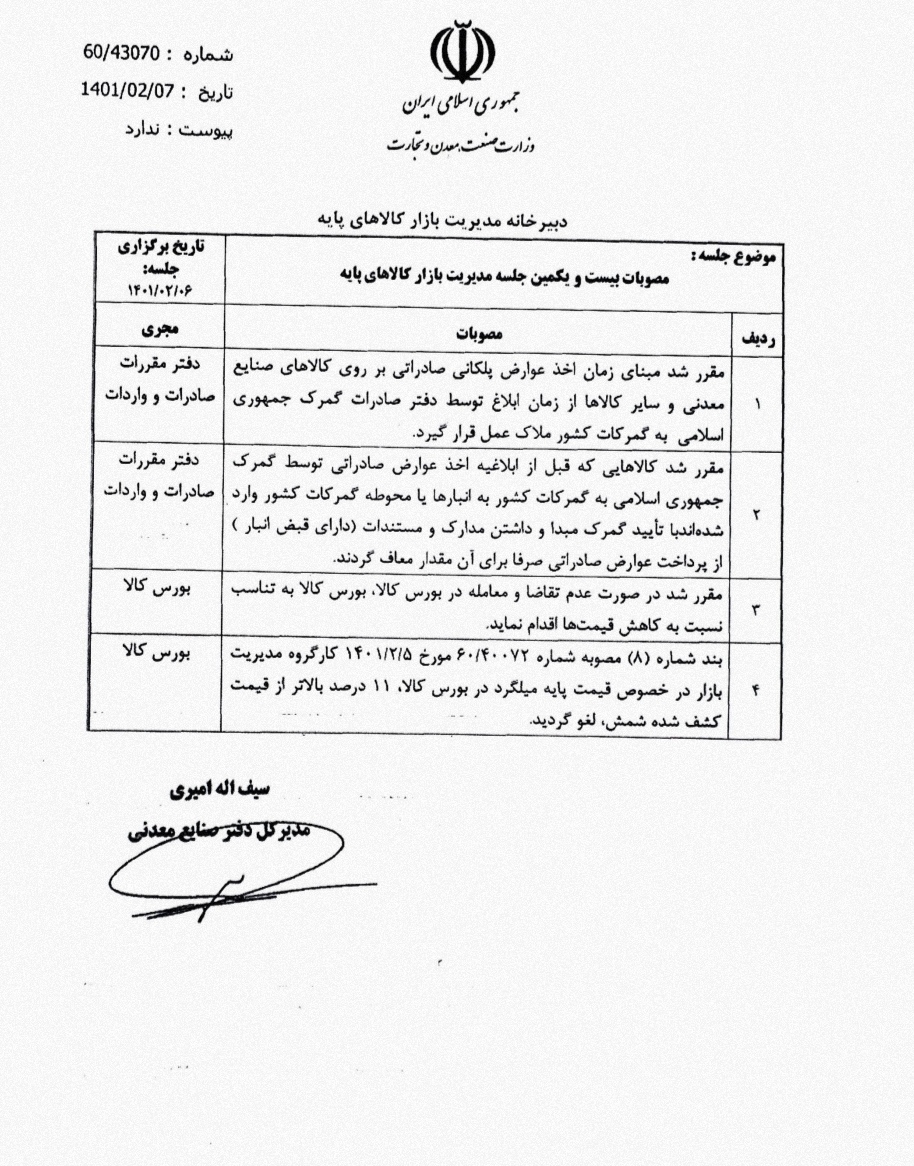 شماره : 60/43070
تاریخ : 1401/02/07
پیوست : ندارد
جمهوری اسلامی ایران
وزارت صنعت، معدن و تجارت
دبیرخانه مدیریت بازار کالاهای پایه
موضوع جلسه:
مصوبات بیست و یکمین جلسه مدیریت بازار کالاهای پایه
تاریخ برگزاری
جلسه:
۱۴۰۱/۰۲/۰۶
ردیف
مصوبات
مجری
۱
مقرر شد مبنای زمان اخذ عوارض پلکانی صادراتی بر روی کالاهای صنایع
معدنی و سایر کالاها از زمان ابلاغ توسط دفتر صادرات گمرک جمهوری
اسلامی به گمرکات کشور ملاک عمل قرار گیرد.
دفتر مقررات
صادرات و واردات
۲
مقرر شد کالاهایی که قبل از ابلاغیه اخذ عوارض صادراتی توسط گمرک
جمهوری اسلامی به گمرکات کشور به انبارها یا محوطه گمرکات کشور وارد
شده‌اندبا تأیید گمرک مبدا و داشتن مدارک و مستندات (دارای قبض انبار )
از پرداخت عوارض صادراتی صرفا برای آن مقدار معاف گردند.
دفتر مقررات
صادرات و واردات
۳
مقرر شد در صورت عدم تقاضا و معامله در بورس کالا، بورس کالا به تناسب
نسبت به کاهش قیمت‌ها اقدام نماید.
بورس کالا
۴
بند شماره (۸) مصوبه شماره ۶۰/۴۰۰۷۲ مورخ ۱۴۰۱/۲/۵ کارگروه مدیریت
بازار در خصوص قیمت پایه میلگرد در بورس کالا، ۱۱ درصد بالاتر از قیمت
کشف شده شمش، لغو گردید.
بورس کالا
سیف اله امیری
مدیرکل دفتر صنایع معدنی